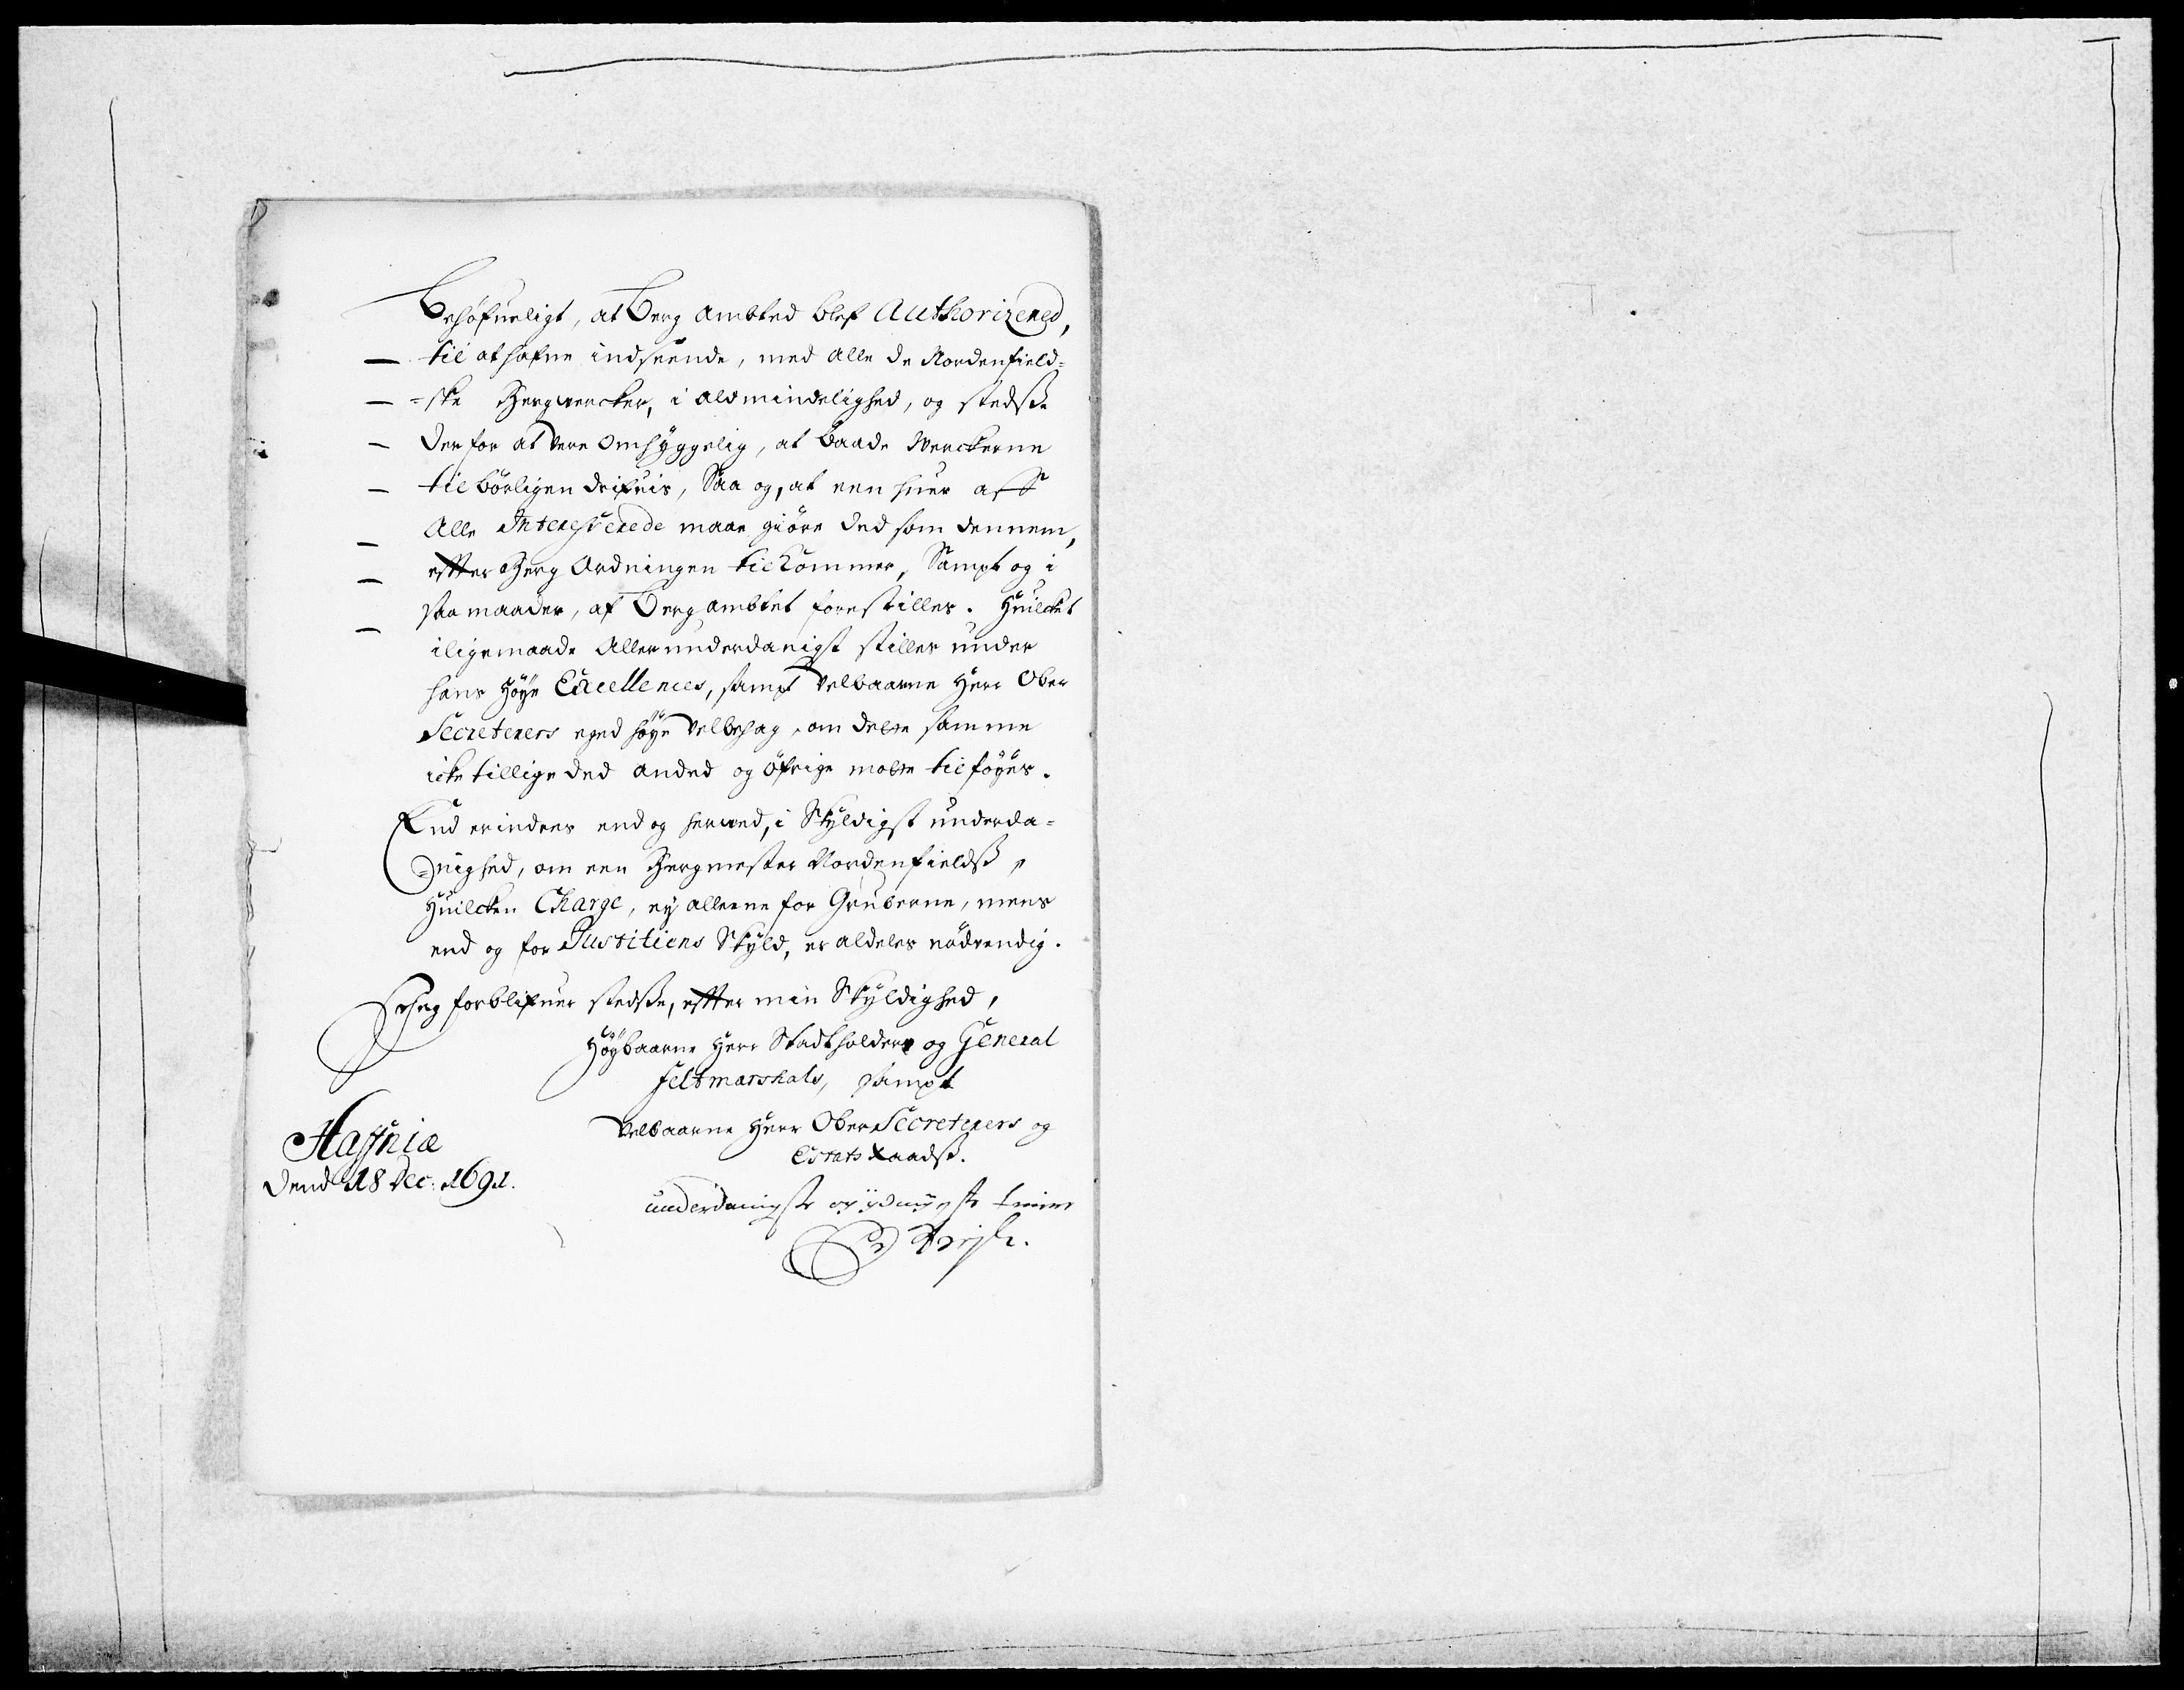 Behøfueligt, at Berg Ambted blef Authorizered,
til at hafue indseende, med Alle de Nordenfield-
-ske Bergwercker, i Almindelighed, og stedsse
derfor at vere Omhyggelig, at baade Werckerne
tilbörligen drifuis, Saa og, at een huer aff
Alle Interesserede maae giöre ded som dennem,
effter Berg Ordningen tilkommer, Sampt og i
saa maader, af Bergambtet forestilles. Huilcket
iligemaade Allerunderdanigst stilles under
hans Höye Excellences, sampt Velbaarne Herr Ober
Secreterers eged höye Velbehag, om dette samme
icke tillige ded anded og öfrige motte tilföyes.
End erindres end og herved, i Skyldigst underda-
-nighed, om een Bergmester Nordenfieldss,
Huilcken Charge, ey alleene for Gruberne, mens
end og for Justitiens Skyld, er aldeles nödvendig.
Jeg forblifuer stedsse, effter min Skyldighed,
Höybaarne Herr Stadtholders og General
Feltmarshals, sampt
Velbaarne Herr Ober Secreterers og
Estats Raadss.
Haffniæ
Dend 18 Dec: 1691.
underdanigste og ydmygste tiener